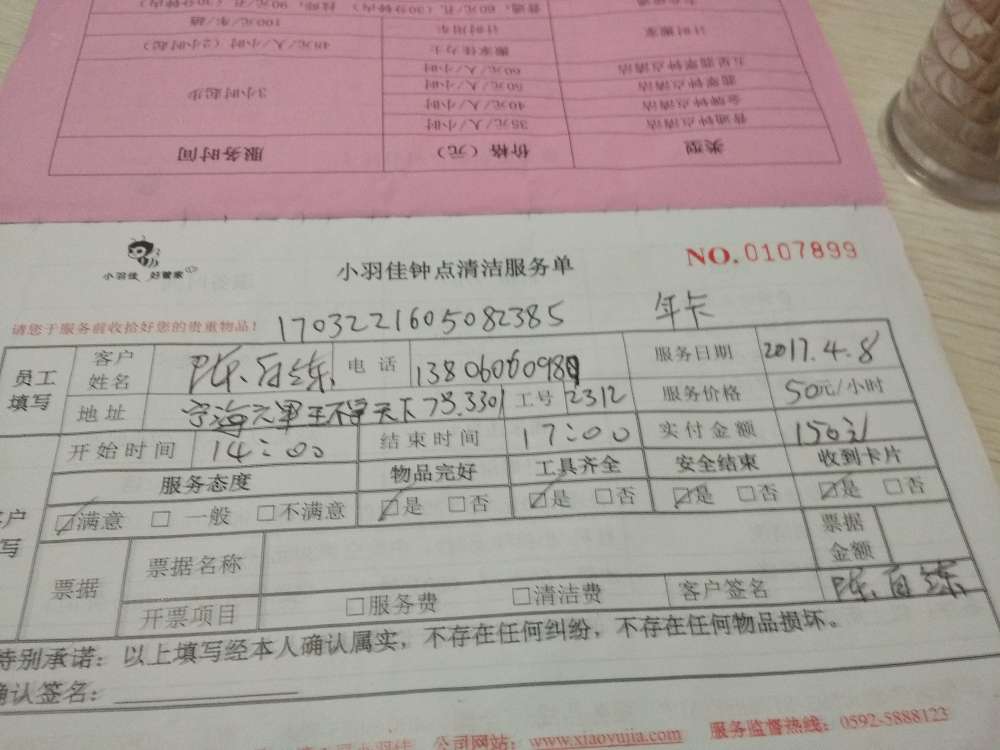 普通，60元/孔（30分钟内） 技师，90元/孔（30分钟内）
计时搬家 计时用车 100元/车/趟
搬家佳力士 48元/人/小时（2小时起）
五星翡翠钟点清洁 60元/人/小时
翡翠钟点清洁 50元/人/小时 3小时起步
金牌钟点清洁 40元/人/小时
普通钟点清洁 35元/人/小时
类型 价格（元） 服务时间
小羽佳 好管家
小羽佳钟点清洁服务单
NO.0107899
请您于服务前收拾好您的贵重物品！
1703221605082385 年卡
员工填写 客户姓名 陈自练 电话 服务日期 2017.4.8
地址 工号 2312 服务价格 50元/小时
开始时间 14:00 结束时间 17:00 实付金额 150元
服务态度 物品完好 工具齐全 安全结束 收到卡片
满意 一般 不满意 是 否 是 否 是 否 是 否
票据 票据名称 票据金额
开票项目 服务费 清洁费 客户签名 陈自练
特别承诺：以上填写经本人确认属实，不存在任何纠纷，不存在任何物品损坏。
确认签名：
公司网站：www.xiaoyujia.com 服务监督热线：0592-5888123